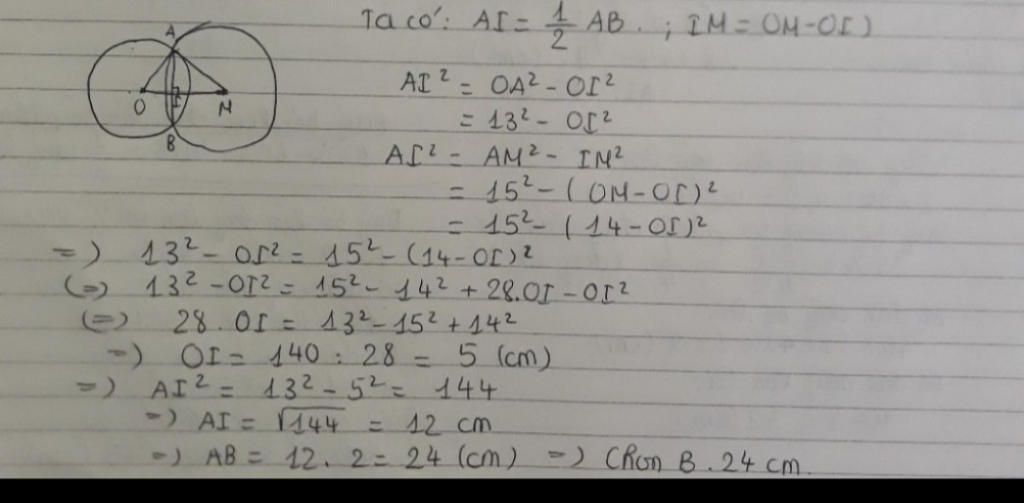 Ta có: AI = 1/2 AB. ; IM = OM - OI)
A
O I M
B
AI² = OA² - OI²
= 13² - OI²
AI² = AM² - IM²
= 15² - (OM - OI)²
= 15² - (14 - OI)²
=) 13² - OI² = 15² - (14 - OI)²
(=) 13² - OI² = 15² - 14² + 28.OI - OI²
(=) 28.OI = 13² - 15² + 14²
=) OI = 140 : 28 = 5 (cm)
=) AI² = 13² - 5² = 144
=) AI = √144 = 12 cm
=) AB = 12.2 = 24 (cm) =) Chọn B. 24 cm.